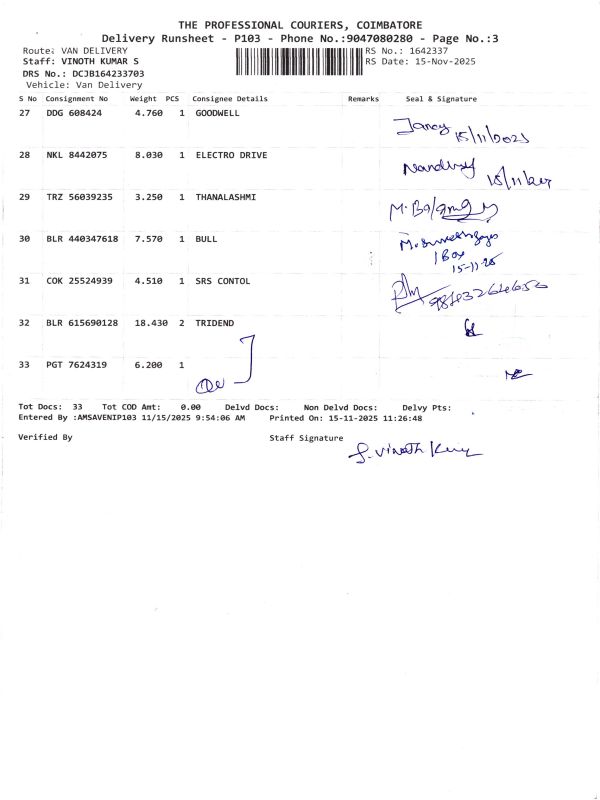 THE PROFESSIONAL COURIERS, COIMBATORE
Delivery Runsheet - P103 - Phone No.:9047080280 - Page No.:3
Route: VAN DELIVERY RS No.: 1642337
Staff: VINOTH KUMAR S RS Date: 15-Nov-2025
DRS No.: DCJB164233703
Vehicle: Van Delivery
S No Consignment No Weight PCS Consignee Details Remarks Seal & Signature
27 DDG 608424 4.760 1 GOODWELL
Jancy 15/11/2025
28 NKL 8442075 8.030 1 ELECTRO DRIVE
15/11/
29 TRZ 56039235 3.250 1 THANALASHMI
30 BLR 440347618 7.570 1 BULL
1 Box
15-11-25
31 COK 25524939 4.510 1 SRS CONTOL
32 BLR 615690128 18.430 2 TRIDEND
33 PGT 7624319 6.200 1
Tot Docs: 33 Tot COD Amt: 0.00 Delvd Docs: Non Delvd Docs: Delvy Pts:
Entered By :AMSAVENIP103 11/15/2025 9:54:06 AM Printed On: 15-11-2025 11:26:48
Verified By Staff Signature
S. Vinoth